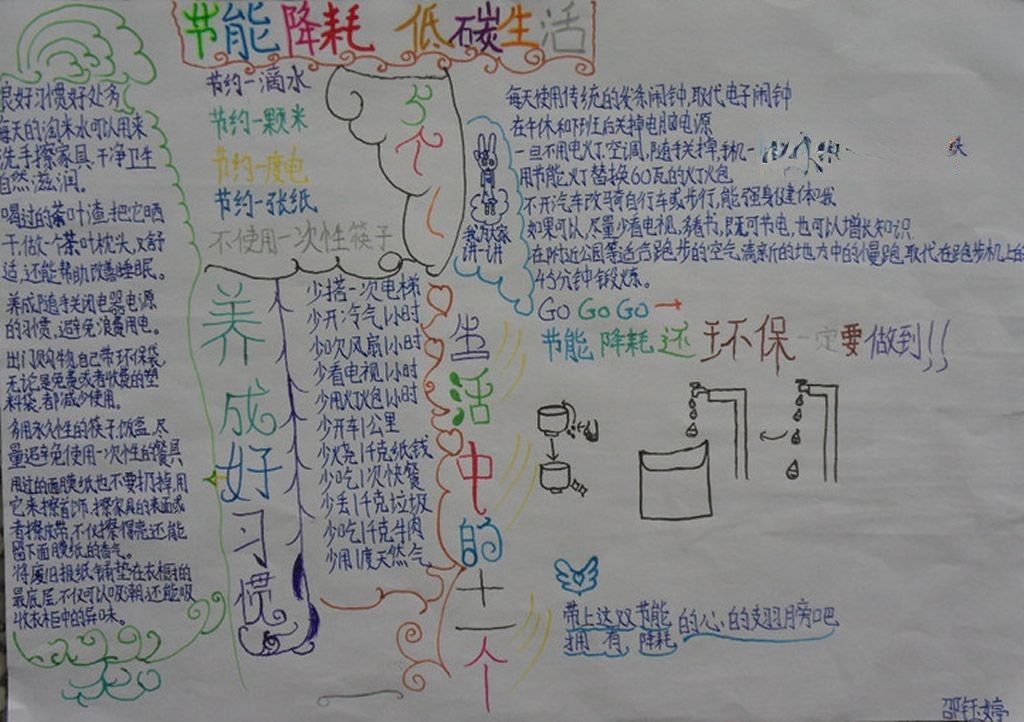 节能降耗 低碳生活
良好习惯好处多
每天的淘米水可以用来
洗手擦家具,干净卫生
自然滋润。
喝过的茶叶渣,把它晒
干,做个茶叶枕头,又舒
适,还能帮助改善睡眠。
养成随手关闭电器电源
的习惯,避免浪费用电。
出门购物,自己带环保袋,
无论是免费或者收费的塑
料袋,都减少使用。
多用永久性的筷子、饭盒,尽
量避免使用一次性的餐具
用过的面膜纸也不要扔掉,用
它来擦首饰、擦家具的表面或
者擦皮带,不仅擦得亮还能
留下面膜纸的香气。
将废旧报纸铺垫在衣橱的
最底层,不仅可以吸潮,还能吸
收衣柜中的异味。
节约一滴水
节约一颗米
节约一度电
节约一张纸
不使用一次性筷子
养成好习惯
少搭一次电梯
少开冷气1小时
少吹风扇1小时
少看电视1小时
少用灯包1小时
少开车1公里
少烧1千克纸钱
少吃1次快餐
少丢1千克垃圾
少吃1千克牛肉
少用1度天然气
生活中的十一个
我为大家
讲一讲
每天使用传统的发条闹钟,取代电子闹钟
在午休和下班后关掉电脑电源
一旦不用电灯、空调,随手关掉,手机一
用节能灯替换60瓦的灯包
不开汽车改骑自行车或步行,能强身健体哦
如果可以,尽量少看电视,多看书,既可节电,也可以增长知识
在附近公园等适合跑步的空气清新的地方中的慢跑,取代在跑步机上的
45分钟锻炼。
GO GO GO →
节能降耗还环保一定要做到!!
带上这双节能 的心的翅膀吧
拥有降耗
邵钰婷